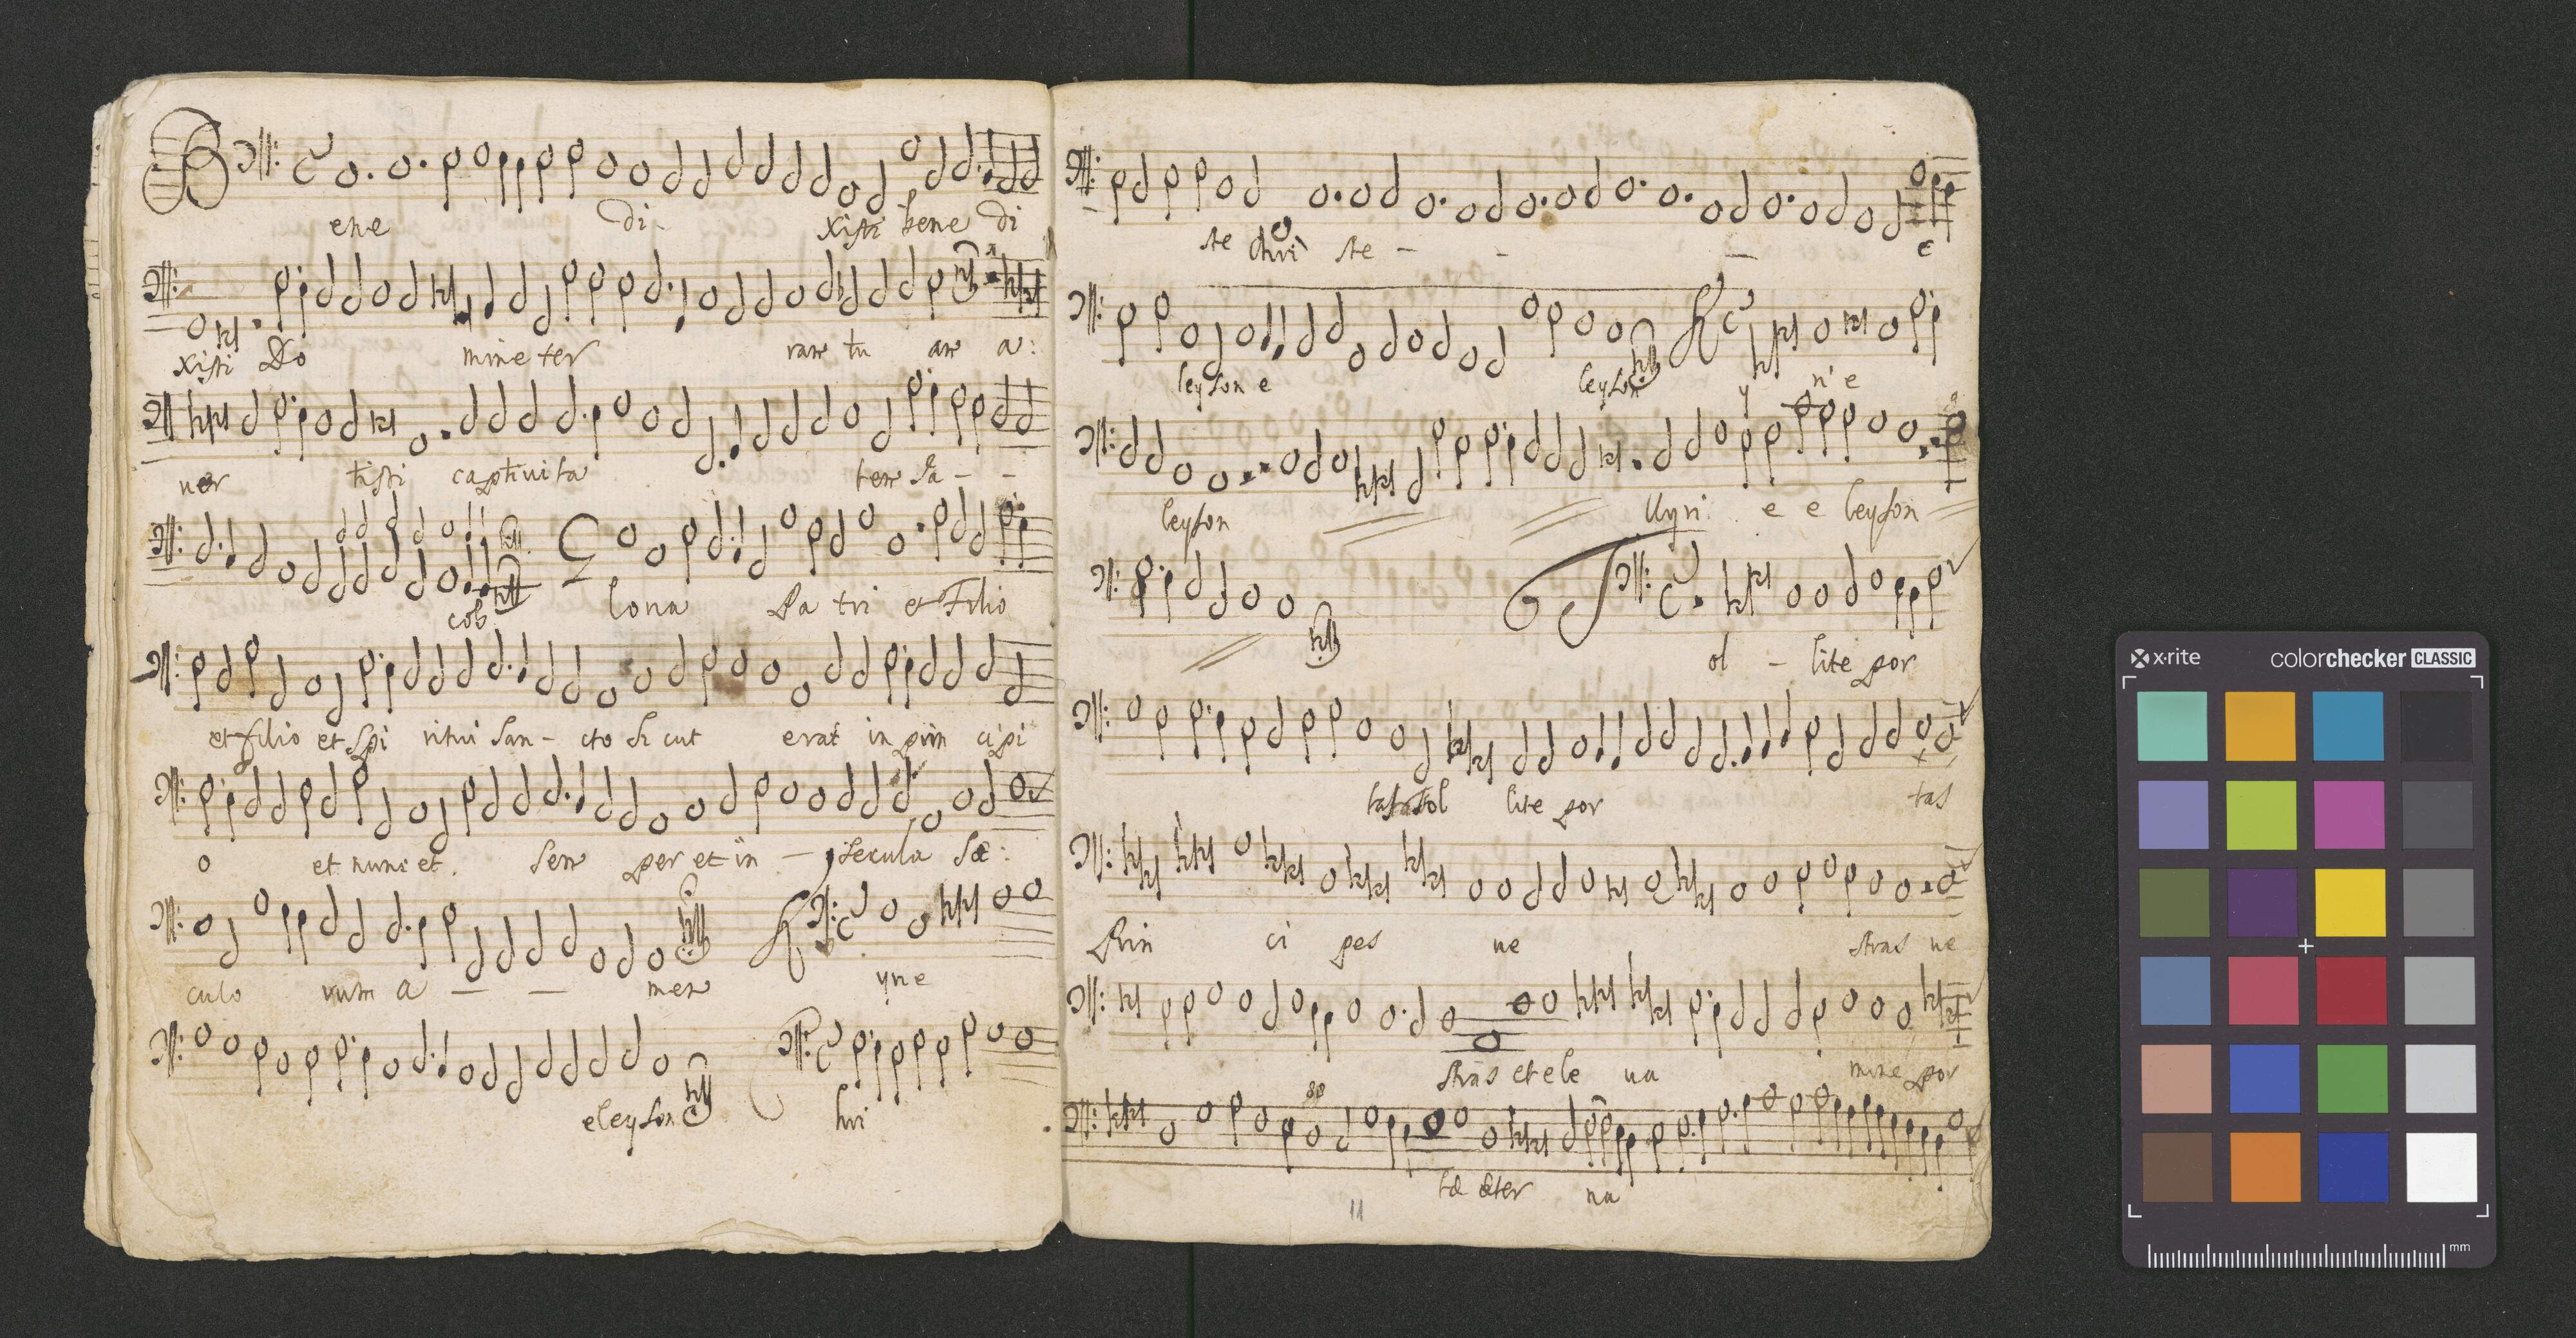 B
ene di- xisti bene di
xisti Do mine ter ram tu am a:
ver tisti captivita tem Ja - -
cob G loria Patri et Filio
et filio et Spi ritui San - cto Si cut erat in prin cipi
o et nunc et. Sem per et in - secula Sæ:
culo rum A — — men K yrie
eleyson C hri
ste Chri ste - - - e
leyson e leyson K y ri e
leyson Kyri e e leyson
T ol - lite por
tas tol lite por tas
Prin ci pes ve stras ve
stras et ele va mine por
tæ æter na
11
x·rite colorchecker CLASSIC
mm